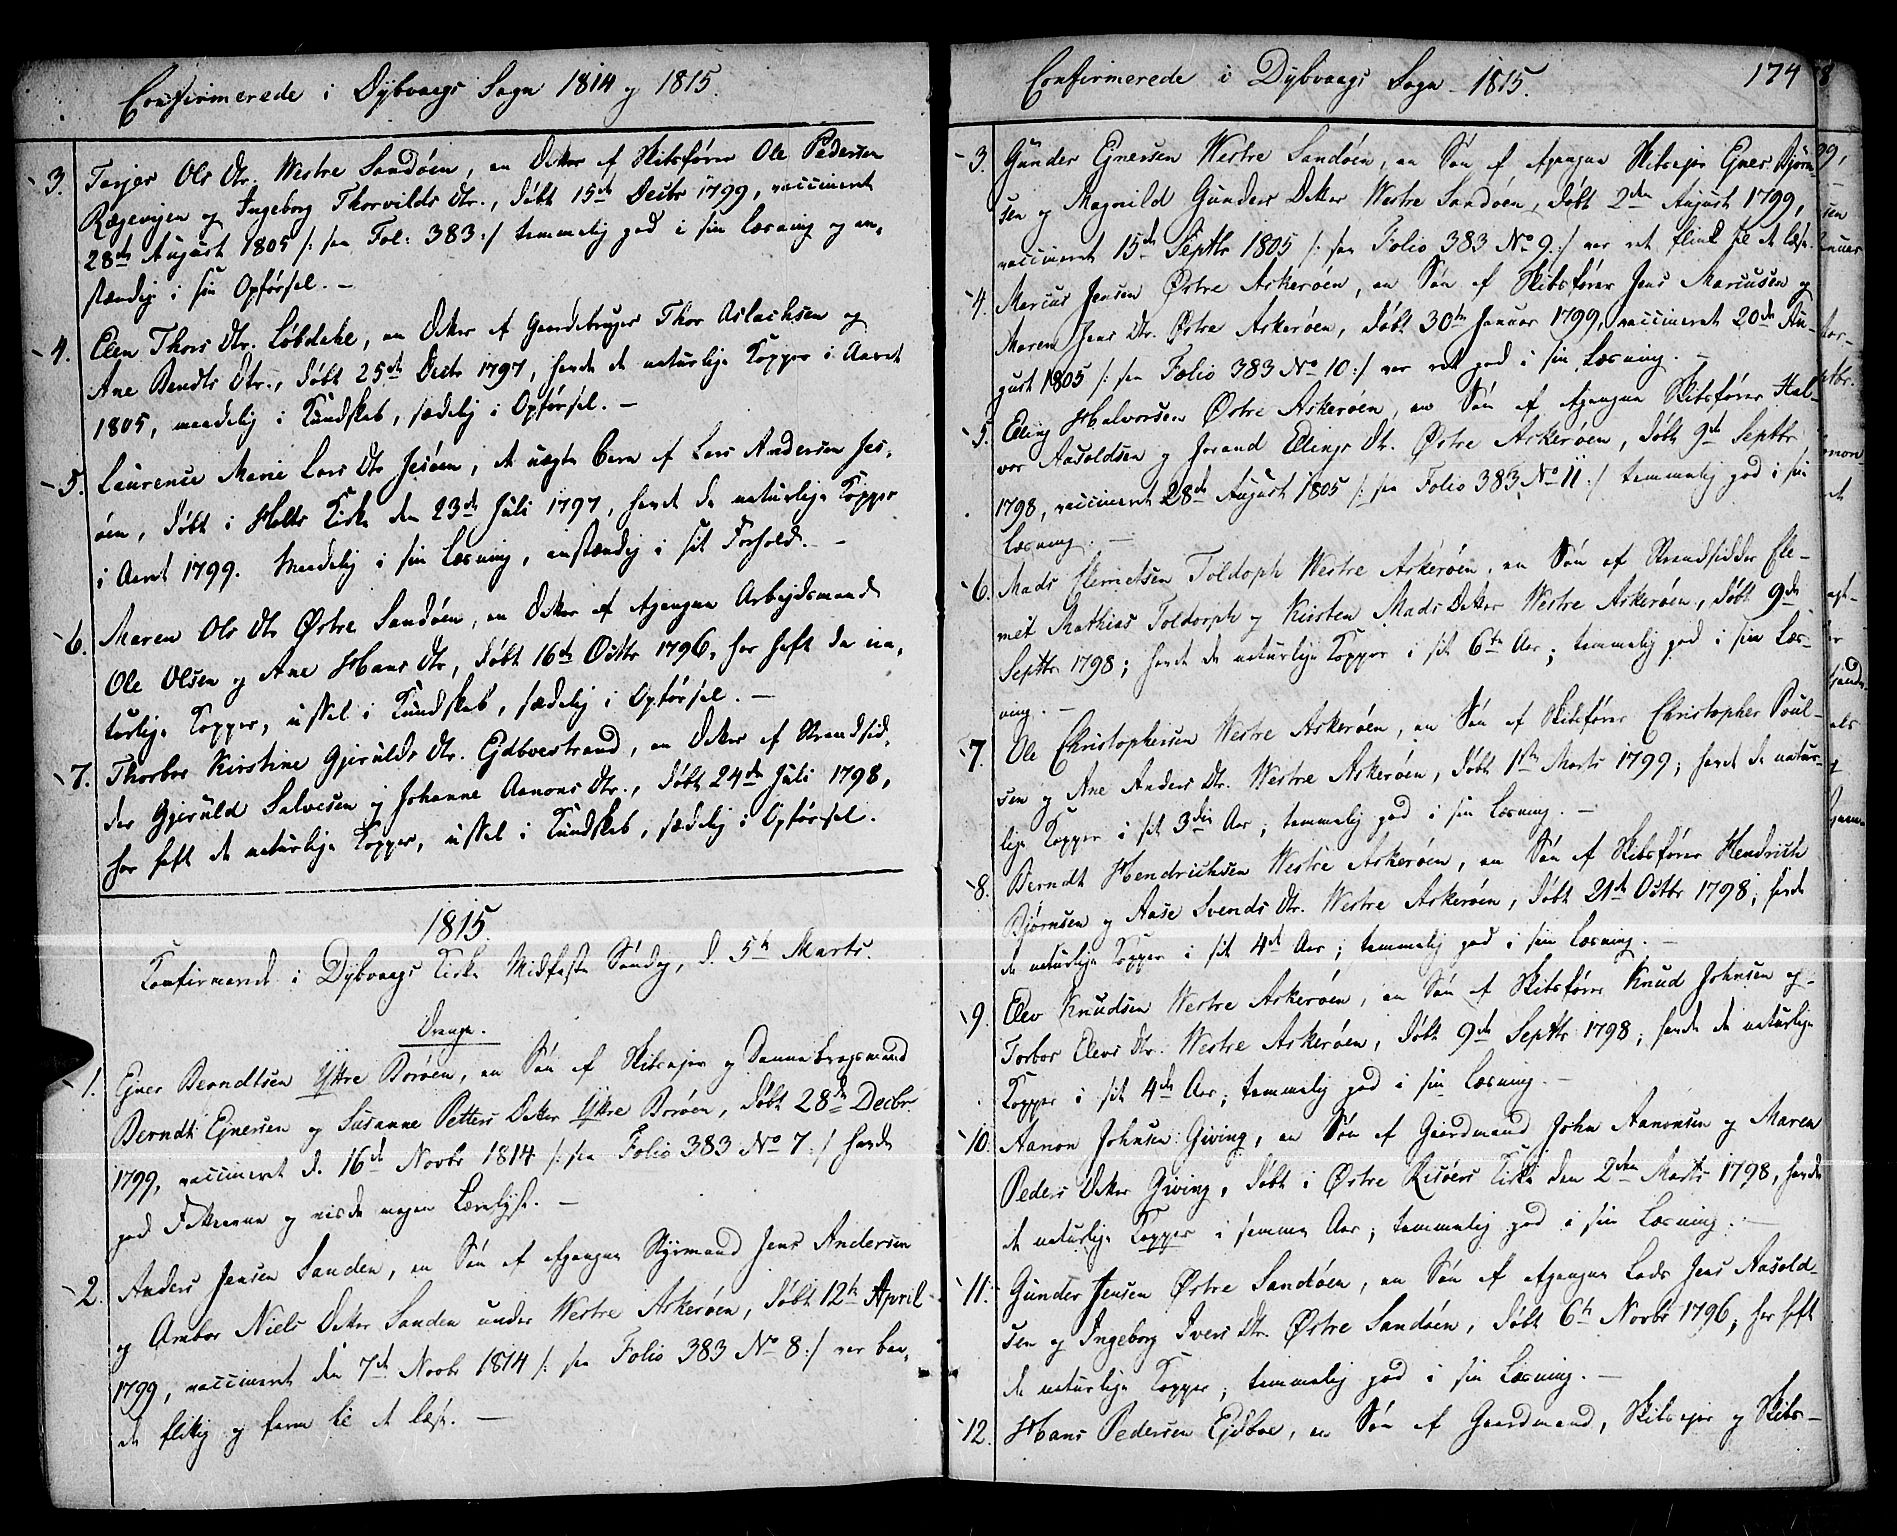 Confirmerede i Dybvaags Sogn 1814 og 1815.
3. Terjer Ols Dtr. Westre Sandöen, en Dotter af Skibsfører Ole Pedersen
Ragevigen og Ingeborg Thorvilds Dtr., døbt 15de Decbr 1799, vaccineret
28de August 1805 /: see Fol: 383 :/ temmelig god i sin Læsning og an-
stændig i sin Opførsel. —
4. Elen Thors Dtr. Løbdahl, en Dotter af Gaardebruger Thor Aslachsen og
Ane Bendts Dtr., døbt 25de Decbr 1797, havde de naturlige Kopper i Aaret
1805, maadelig i Kundskab, sædelig i Opførsel. —
5. Laurence Marie Lars Dtr Jesöen, et uægte Barn af Lars Andersen Jes-
öen, døbt i Holts Kirke den 23de Juli 1797, havde de naturlige Kopper
i Aaret 1799. Maadelig i sin Læsning, anstændig i sit Forhold. —
6. Maren Ols Dtr Östre Sandöen, en Dotter af afgangne Arbejdsmand
Ole Olsen og Ane Hans Dtr, døbt 16de Octbr 1796, har haft de na-
turlige Kopper, ussel i Kundskab, sædelig i Opførsel. —
7. Thorbor Kirstine Gjeruldsdtr. Ejdbvestrand, en Dotter af Strandsid-
der Gjeruld Salvesen og Johanne Aanons Dtr., døbt 24de Juli 1798,
har haft de naturlige Kopper, ussel i Kundskab, sædelig i Opførsel.
1815
Confirmered i Dybvaags Kirke Midfaste Søndag, d. 5te Marts.
Drenge.
1. Ejner Berndtsen Yttre Boröen, en Søn af Skibsejer og Dannebrogsmand
Berndt Ejnersen og Susanne Petters Dotter Yttre Boröen, døbt 28de Decbr.
1799, vaccineret d. 16de Novbr 1814 /: see Folio 383 No 7 :/ havde
god og viste megen Lærelyst. —
2. Anders Jensen Sanden, en Søn af afgangne Styrmand Jens Andersen
og Ambor Niels Dotter Sanden under Westre Askeröen, døbt 12te April
1799, vaccineret den 7de Novbr 1814 /: see Folio 383 No 8 :/ var baa-
de flittig og færm til at læse. —
Confirmerede i Dybvaags Sogn 1815.
174
3. Gunder Ejnersen Westre Sandöen, en Søn af afgangne Skibsejer Ejner Björn-
sen og Magnild Gunders Dotter Westre Sandöen, døbt 2den August 1799,
vaccineret 15de Septbr 1805 /: see Folio 383 No 9 :/ var ret flink til at læse.
4. Marcus Jensen Östre Askeröen, en Søn af Skibsfører Jens Marcusen og
Maren Jens Dtr. Östre Askeröen, døbt 30te Januar 1799, vaccineret 20de Au-
gust 1805 /: see Folio 383 No 10 :/ var ret god i sin Læsning. —
5. Elling Halvorsen Östre Askeröen, en Søn af afgangne Skibsfører Hal-
vor Aasoldsen og Jorand Ellings Dtr. Östre Askeröen, døbt 9de Septbr
1798, vaccineret 28de August 1805 /: see Folio 383 No 11 :/ temmelig god i sin
Læsning. —
6. Mads Elemetsen Toldoph Westre Askeröen, en Søn af Strandsidder Ele-
met Mathias Toldorph og Kirsten Mads Dotter Westre Askeröen, døbt 9de
Septbr 1798; havde de naturlige Kopper i sit 6te Aar; temmelig god i sin Læs-
ning. —
7. Ole Christophersen Westre Askeröen, en Søn af Skibsfører Christopher Poul-
sen og Ane Anders Dtr. Westre Askeröen, døbt 1ste Marts 1799; havde de natur-
lige Kopper i sit 3die Aar; temmelig god i sin Læsning. —
8. Berndt Hendrichsen Westre Askeröen, en Søn af Skibsfører Hendrich
Björnsen og Aase Svends Dtr. Westre Askeröen, døbt 21de Octbr 1798; havde
de naturlige Kopper i sit 4de Aar; temmelig god i sin Læsning. —
9. Elev Knudsen Westre Askeröen, en Søn af Skibsfører Knud Johnsen og
Torbor Elevs Dtr. Westre Askeröen, døbt 9de Septbr 1798; havde de naturlige
Kopper i sit 4de Aar; temmelig god i sin Læsning. —
10. Aanon Johnsen Giving, en Søn af Gaardmand John Aanonsen og Maren
Peders Dotter Giving, døbt i Östre Risöers Kirke den 2den Marts 1798, havde
de naturlige Kopper i samme Aar; temmelig god i sin Læsning. —
11. Gunder Jensen Östre Sandöen, en Søn af afgangne Lods Jens Aasold-
sen og Ingeborg Ivers Dtr. Östre Sandöen, døbt 6te Novbr 1796; har haft
de naturlige Kopper; temmelig god i sin Læsning. —
12. Hans Pedersen Ejdboe, en Søn af Gaardmand, Skibsejer og Skibs-